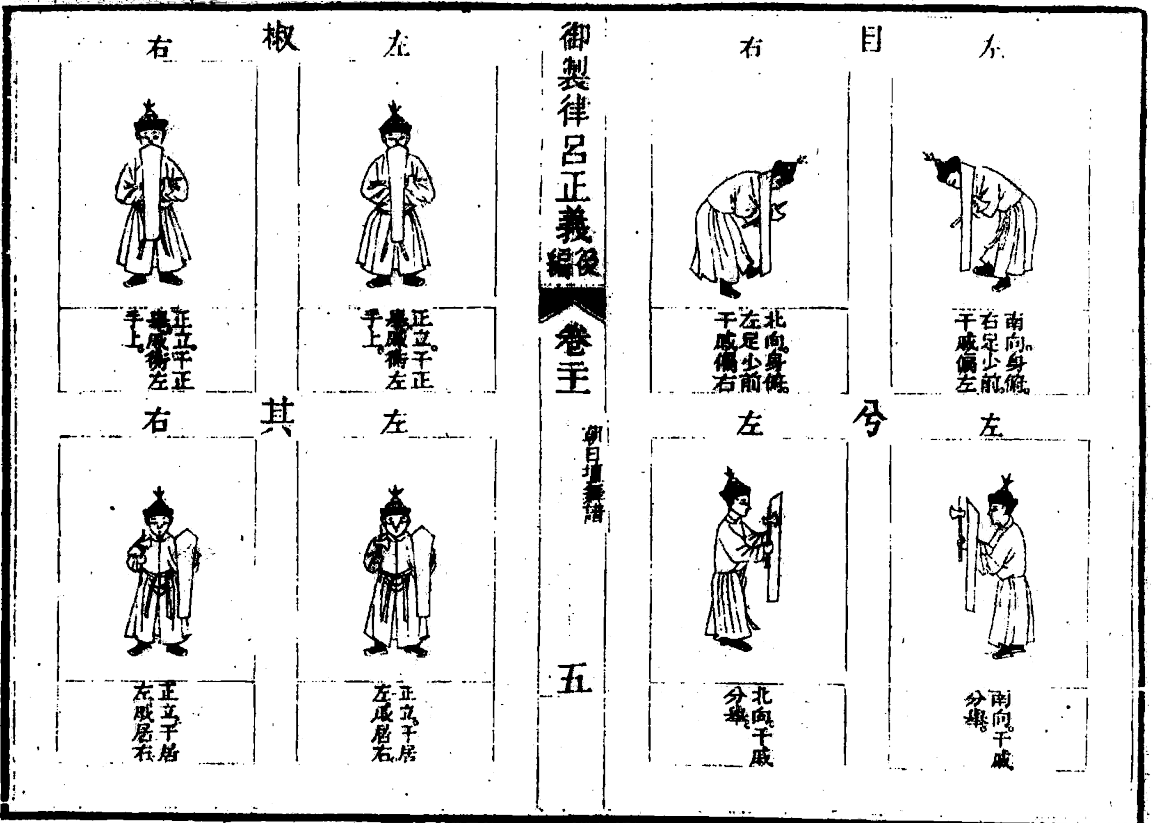 目
左
南向。身俯。
右足少前。
干戚偏左
右
北向。身俯。
左足少前
干戚偏右
兮
左
南向。干戚
分舉。
左
北向。干戚
分舉。
御製律呂正義後編
卷
朝日壇舞譜
五
椒
左
正立。干正
舉。戚衡左
手上。
右
正立。干正
舉。戚衡左
手上。
其
左
正立。干居
左。戚居右
右
正立。干居
左。戚居右